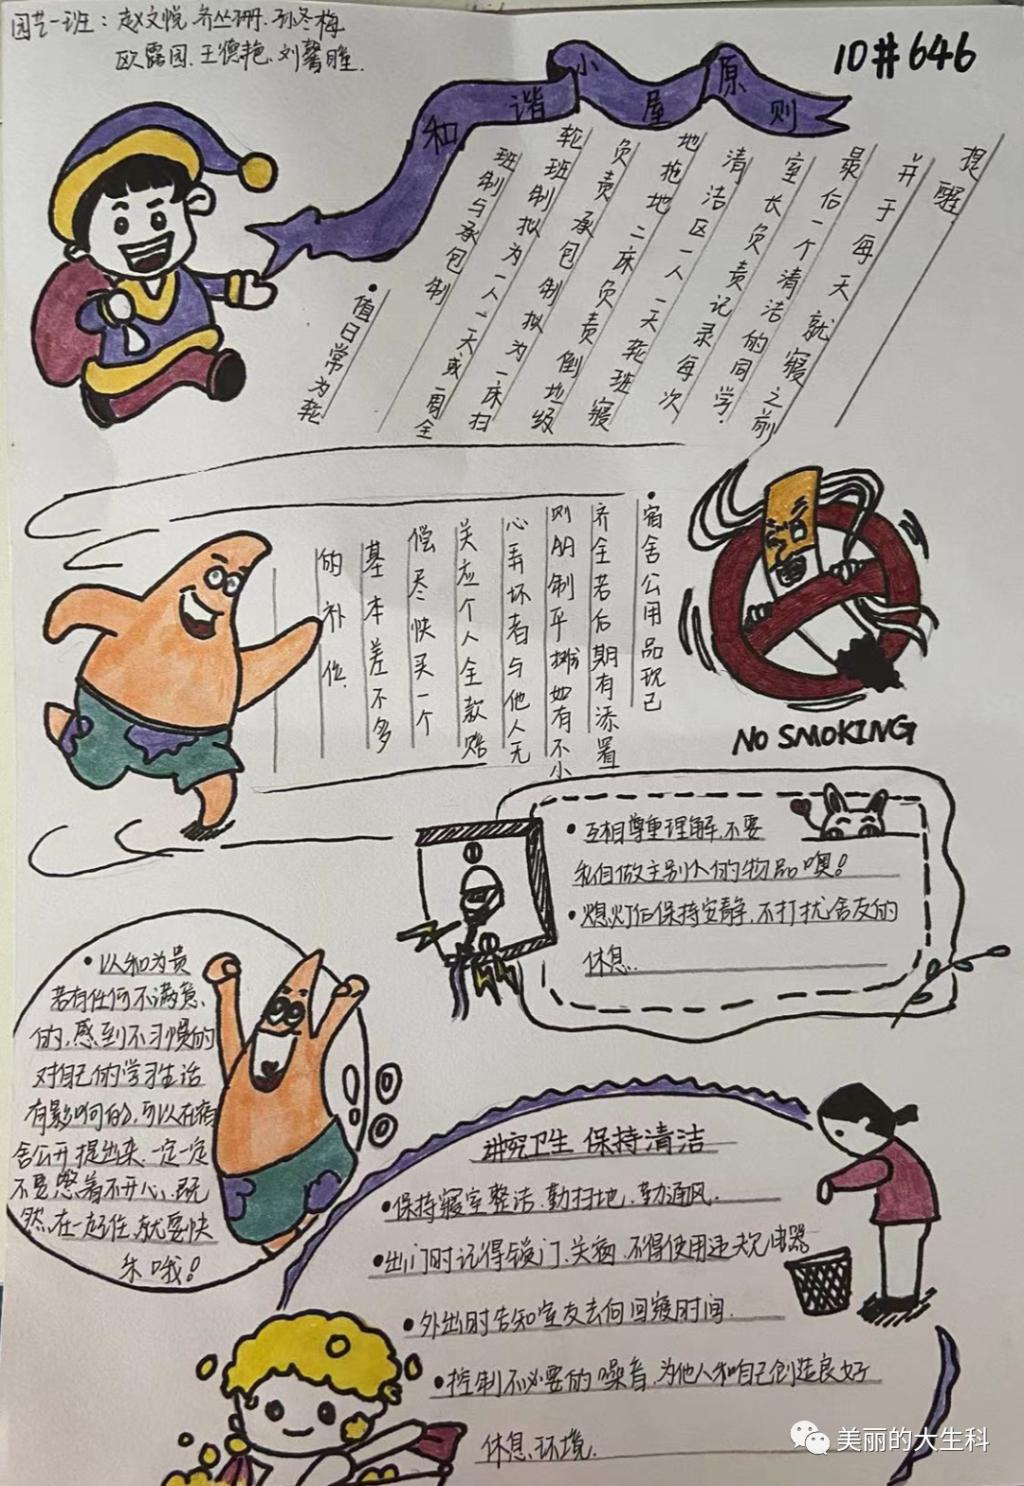 园艺一班：赵文悦、齐丛珊、孙冬梅
欧露园、王德艳、刘馨睢
10#646
和谐小屋原则
•值日常为轮
班制与承包制
轮班制拟为一人一天或一周全
负责承包制拟为一床扫
地拖地二床负责倒垃圾
清洁区一人一天轮班寝
室长负责记录每次
最后一个清洁的同学.
并于每天就寝之前
提醒
•宿舍公用品现已
齐全若后期有添置
则AA制平摊如有不小
心弄坏者与他人无
关应个人全款赔
偿尽快买一个
基本差不多
的补位.
NO SMOKING
•互相尊重理解.不要
私自做主别人的物品噢!
•熄灯后保持安静.不打扰舍友的
休息.
•以和为贵
若有任何不满意、
的,感到不习惯的
对自己的学习生活
有影响的,可以在宿
舍公开提出来.一定一定
不要憋着不开心、既
然在一起住,就要快
乐哦!
讲究卫生 保持清洁
•保持寝室整洁.勤扫地.勤通风.
•出门时记得锁门、关窗.不得使用违规电器
•外出时告知室友去向回寝时间.
•控制不必要的噪音.为他人和自己创造良好
休息环境.
美丽的大生科